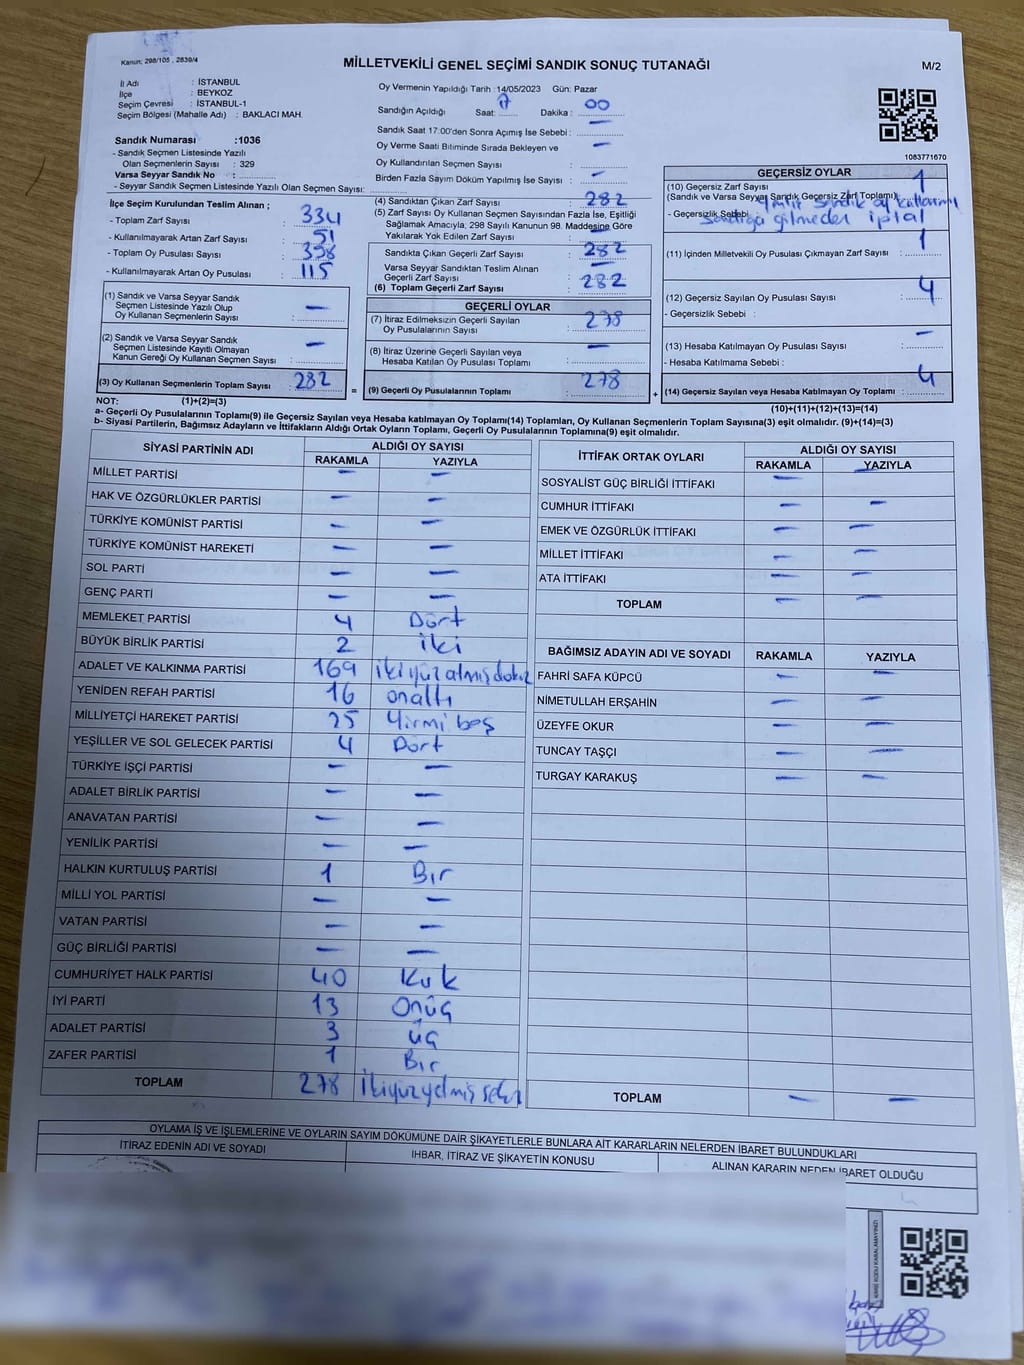 Kanun; 298/105 , 2839/4
MİLLETVEKİLİ GENEL SEÇİMİ SANDIK SONUÇ TUTANAĞI
M/2
İl Adı : İSTANBUL
İlçe : BEYKOZ
Seçim Çevresi : İSTANBUL-1
Seçim Bölgesi (Mahalle Adı) : BAKLACI MAH.
Sandık Numarası :1036
- Sandık Seçmen Listesinde Yazılı
Olan Seçmenlerin Sayısı : 329
Varsa Seyyar Sandık No :
- Seyyar Sandık Seçmen Listesinde Yazılı Olan Seçmen Sayısı:
İlçe Seçim Kurulundan Teslim Alınan ;
- Toplam Zarf Sayısı : 334
- Kullanılmayarak Artan Zarf Sayısı : 51
- Toplam Oy Pusulası Sayısı : 398
- Kullanılmayarak Artan Oy Pusulası : 115
(1) Sandık ve Varsa Seyyar Sandık
Seçmen Listesinde Yazılı Olup
Oy Kullanan Seçmenlerin Sayısı : —
(2) Sandık ve Varsa Seyyar Sandık
Seçmen Listesinde Kayıtlı Olmayan
Kanun Gereği Oy Kullanan Seçmen Sayısı : —
(3) Oy Kullanan Seçmenlerin Toplam Sayısı : 282
Oy Vermenin Yapıldığı Tarih :14/05/2023 Gün: Pazar
Sandığın Açıldığı Saat: 17 Dakika : 00
Sandık Saat 17:00'den Sonra Açımış İse Sebebi : —
Oy Verme Saati Bitiminde Sırada Bekleyen ve
Oy Kullandırılan Seçmen Sayısı : —
Birden Fazla Sayım Döküm Yapılmış İse Sayısı : —
(4) Sandıktan Çıkan Zarf Sayısı : 282
(5) Zarf Sayısı Oy Kullanan Seçmen Sayısından Fazla İse, Eşitliği
Sağlamak Amacıyla, 298 Sayılı Kanunun 98. Maddesine Göre
Yakılarak Yok Edilen Zarf Sayısı : —
Sandıkta Çıkan Geçerli Zarf Sayısı : 282
Varsa Seyyar Sandıktan Teslim Alınan
Geçerli Zarf Sayısı : —
(6) Toplam Geçerli Zarf Sayısı : 282
GEÇERLİ OYLAR
(7) İtiraz Edilmeksizin Geçerli Sayılan
Oy Pusulalarının Sayısı : 278
(8) İtiraz Üzerine Geçerli Sayılan veya
Hesaba Katılan Oy Pusulası Toplamı : —
= (9) Geçerli Oy Pusulalarının Toplamı : 278 +
1083771670
GEÇERSİZ OYLAR
(10) Geçersiz Zarf Sayısı 1
(Sandık ve Varsa Seyyar Sandık Geçersiz Zarf Toplamı) :
- Geçersizlik Sebebi :
sandık oy
sandığa iptal
(11) İçinden Milletvekili Oy Pusulası Çıkmayan Zarf Sayısı : 1
(12) Geçersiz Sayılan Oy Pusulası Sayısı : 4
- Geçersizlik Sebebi :
(13) Hesaba Katılmayan Oy Pusulası Sayısı : —
- Hesaba Katılmama Sebebi :
(14) Geçersiz Sayılan veya Hesaba Katılmayan Oy Toplamı : 4
NOT: (1)+(2)=(3)
(10)+(11)+(12)+(13)=(14)
a- Geçerli Oy Pusulalarının Toplamı(9) ile Geçersiz Sayılan veya Hesaba katılmayan Oy Toplamı(14) Toplamları, Oy Kullanan Seçmenlerin Toplam Sayısına(3) eşit olmalıdır. (9)+(14)=(3)
b- Siyasi Partilerin, Bağımsız Adayların ve İttifakların Aldığı Ortak Oyların Toplamı, Geçerli Oy Pusulalarının Toplamına(9) eşit olmalıdır.
SİYASİ PARTİNİN ADI ALDIĞI OY SAYISI
RAKAMLA YAZIYLA
MİLLET PARTİSİ — —
HAK VE ÖZGÜRLÜKLER PARTİSİ — —
TÜRKİYE KOMÜNİST PARTİSİ — —
TÜRKİYE KOMÜNİST HAREKETİ — —
SOL PARTİ — —
GENÇ PARTİ — —
MEMLEKET PARTİSİ 4 Dört
BÜYÜK BİRLİK PARTİSİ 2 iki
ADALET VE KALKINMA PARTİSİ 169 ikiyüzaltmışdokuz
YENİDEN REFAH PARTİSİ 16 onaltı
MİLLİYETÇİ HAREKET PARTİSİ 25 Yirmi beş
YEŞİLLER VE SOL GELECEK PARTİSİ 4 Dört
TÜRKİYE İŞÇİ PARTİSİ — —
ADALET BİRLİK PARTİSİ — —
ANAVATAN PARTİSİ — —
YENİLİK PARTİSİ — —
HALKIN KURTULUŞ PARTİSİ 1 Bır
MİLLİ YOL PARTİSİ — —
VATAN PARTİSİ — —
GÜÇ BİRLİĞİ PARTİSİ — —
CUMHURİYET HALK PARTİSİ 40 Kırk
İYİ PARTİ 13 Onüç
ADALET PARTİSİ 3 üç
ZAFER PARTİSİ 1 Bır
TOPLAM 278 ikiyüzyetmiş sekiz
İTTİFAK ORTAK OYLARI ALDIĞI OY SAYISI
RAKAMLA YAZIYLA
SOSYALİST GÜÇ BİRLİĞİ İTTİFAKI — —
CUMHUR İTTİFAKI — —
EMEK VE ÖZGÜRLÜK İTTİFAKI — —
MİLLET İTTİFAKI — —
ATA İTTİFAKI — —
TOPLAM — —
BAĞIMSIZ ADAYIN ADI VE SOYADI RAKAMLA YAZIYLA
FAHRİ SAFA KÜPCÜ — —
NİMETULLAH ERŞAHİN — —
ÜZEYFE OKUR — —
TUNCAY TAŞÇI — —
TURGAY KARAKUŞ — —
TOPLAM — —
OYLAMA İŞ VE İŞLEMLERİNE VE OYLARIN SAYIM DÖKÜMÜNE DAİR ŞİKAYETLERLE BUNLARA AİT KARARLARIN NELERDEN İBARET BULUNDUKLARI
İTİRAZ EDENİN ADI VE SOYADI İHBAR, İTİRAZ VE ŞİKAYETİN KONUSU ALINAN KARARIN NEDEN İBARET OLDUĞU